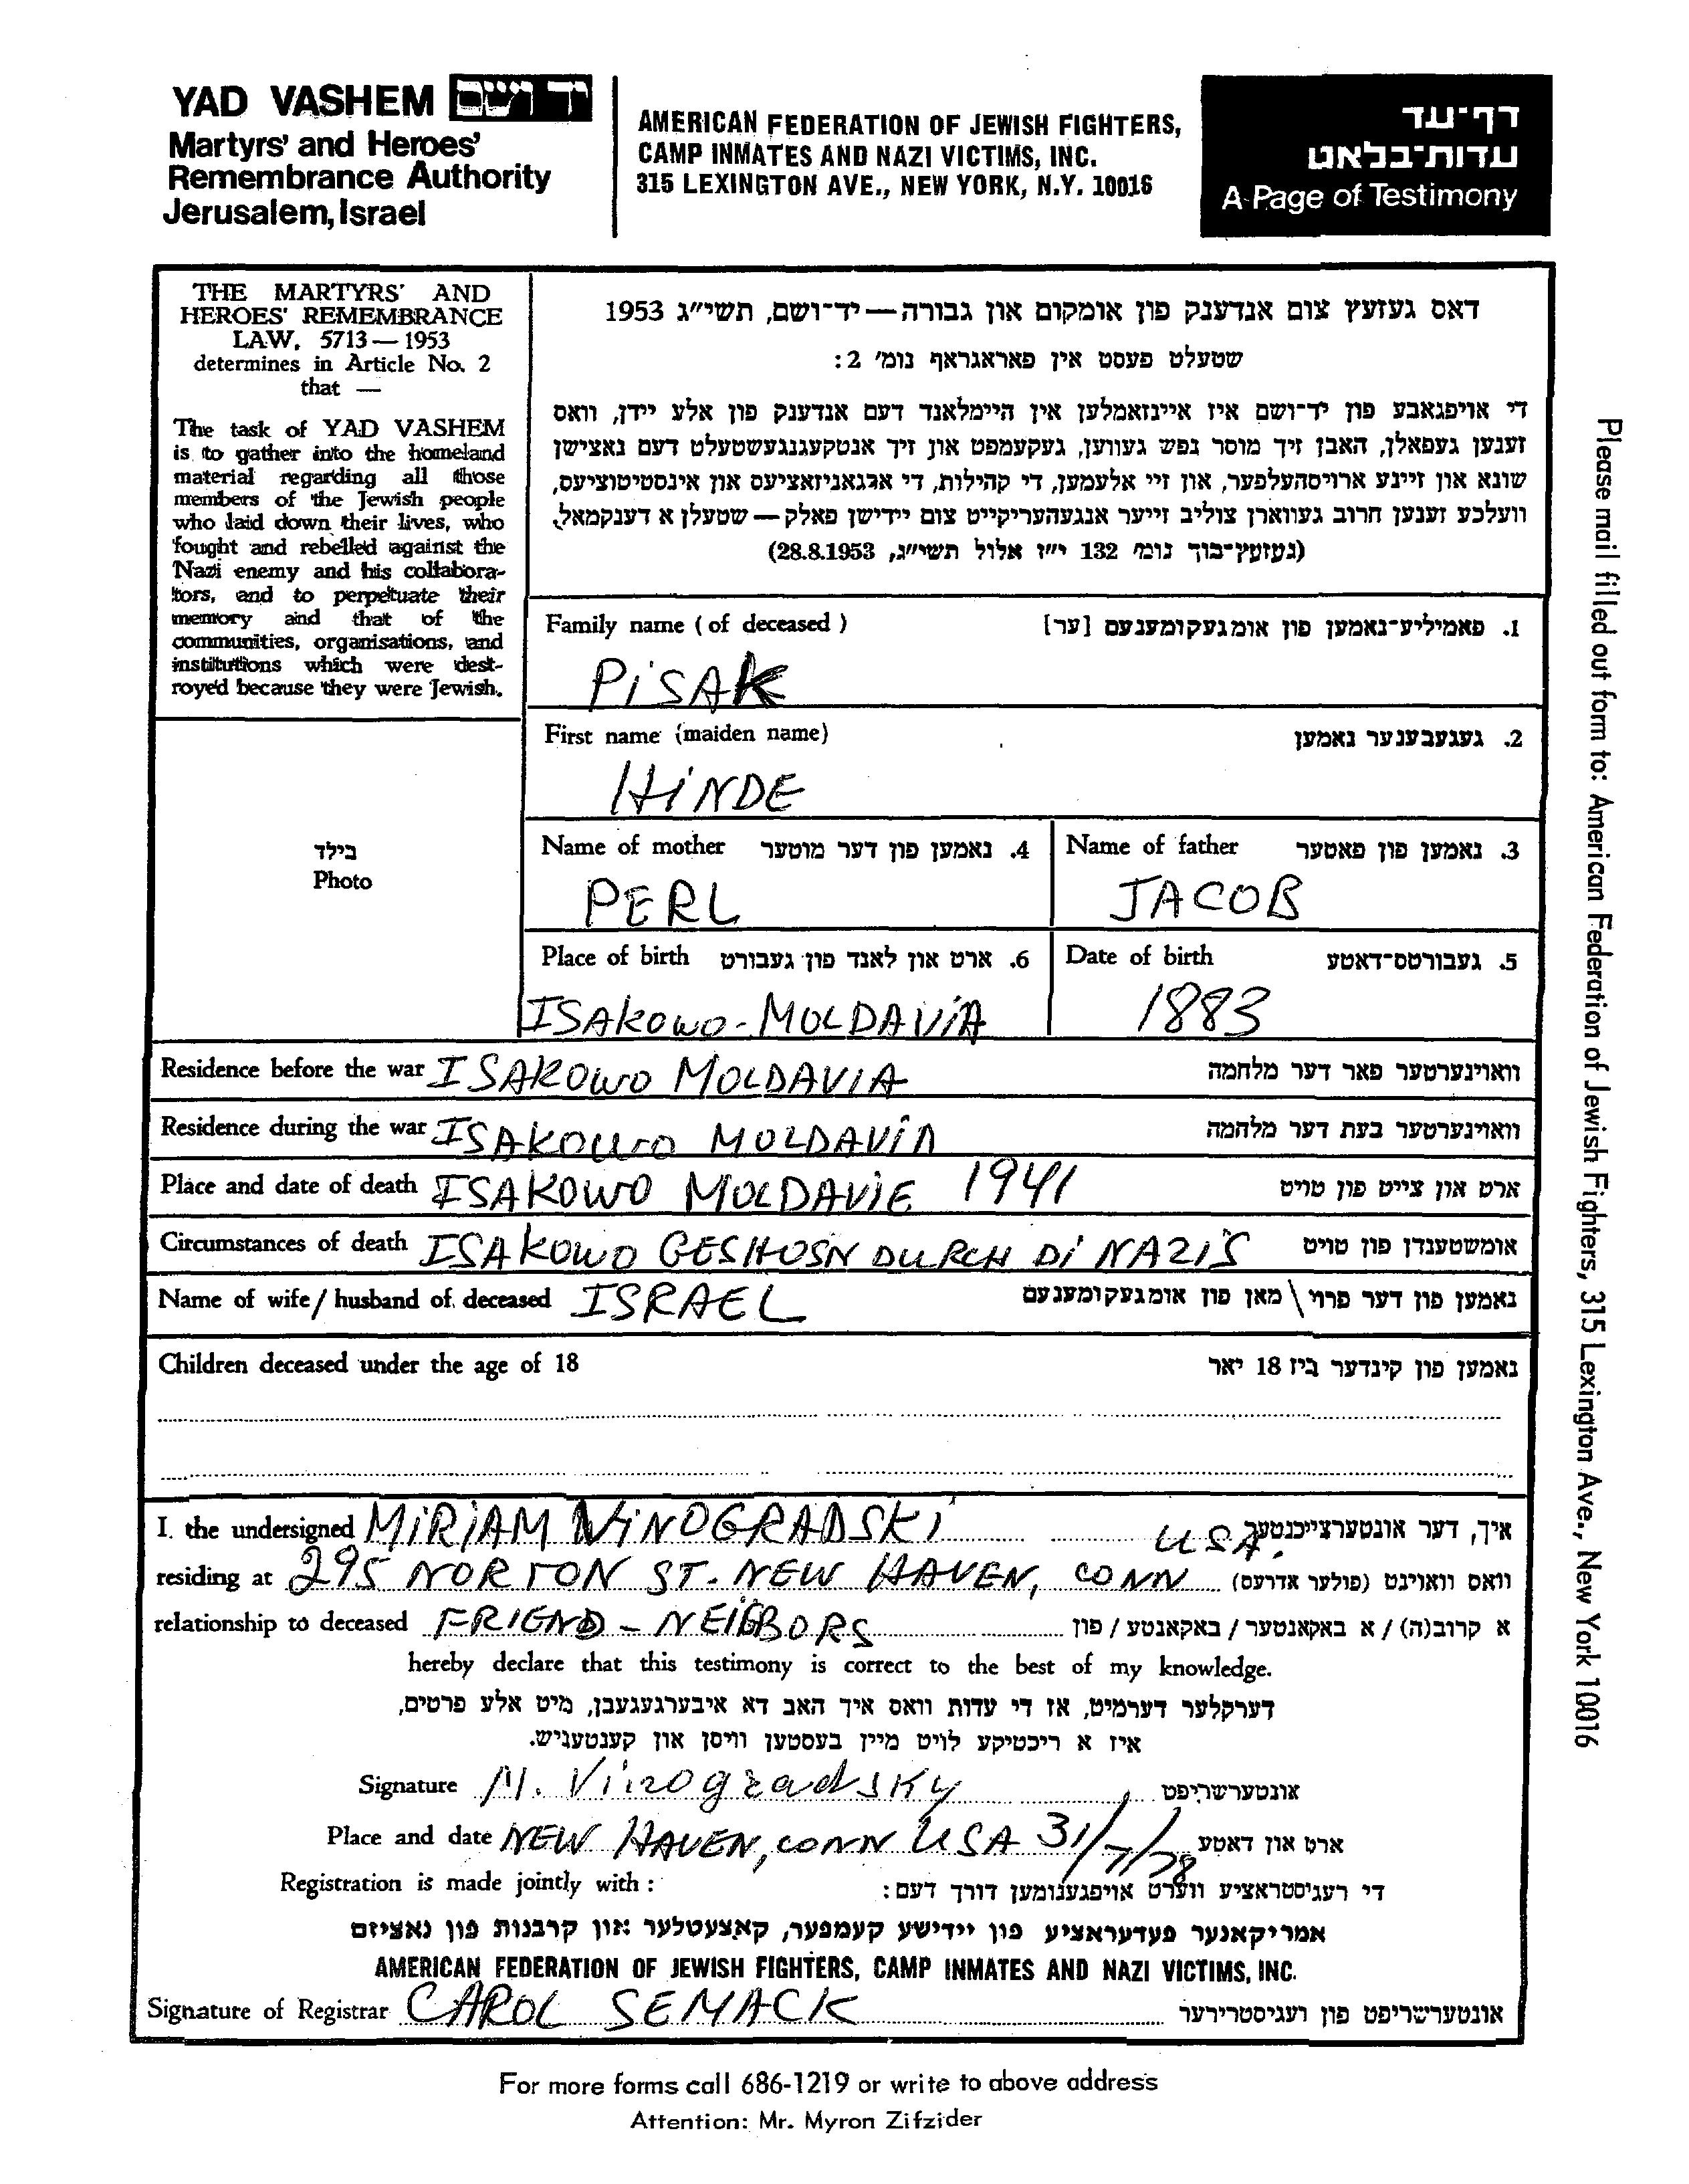 YAD VASHEM יד ושם
Martyrs' and Heroes'
Remembrance Authority
Jerusalem, Israel
AMERICAN FEDERATION OF JEWISH FIGHTERS,
CAMP INMATES AND NAZI VICTIMS, INC.
315 LEXINGTON AVE., NEW YORK, N.Y. 10016
דף-עד
עדות-בלאט
A Page of Testimony
THE MARTYRS' AND
HEROES' REMEMBRANCE
LAW, 5713—1953
determines in Article No. 2
that —
The task of YAD VASHEM
is to gather into the homeland
material regarding all those
members of the Jewish people
who laid down their lives, who
fought and rebelled against the
Nazi enemy and his collabora-
tors, and to perpetuate their
memory and that of the
communities, organisations, and
institutions which were dest-
royed because they were Jewish.
דאס געזעץ צום אנדענק פון אומקום און גבורה — יד-ושם, תשי"ג 1953
שטעלט פעסט אין פאראגראף נומ' 2:
די אויפגאבע פון יד-ושם איז איינזאמלען אין היימלאנד דעם אנדענק פון אלע יידן, וואס
זענען געפאלן, האבן זיך מוסר נפש געווען, געקעמפט און זיך אנטקעגנגעשטעלט דעם נאצישן
שונא און זיינע ארויסהעלפער, און זיי אלעמען, די קהילות, די ארגאניזאציעס און אינסטיטוציעס,
וועלכע זענען חרוב געווארן צוליב זייער אנגעהעריקייט צום יידישן פאלק — שטעלן א דענקמאל.
(געזעץ-בוך נומ' 132 י"ז אלול תשי"ג, 28.8.1953)
Family name (of deceased) 1. פאמיליע-נאמען פון אומגעקומענעם [ער]
PiSAK
First name (maiden name) 2. געגעבענער נאמען
HiNDE
Name of mother 4. נאמען פון דער מוטער Name of father 3. נאמען פון פאטער
PERL JACOB
Place of birth 6. ארט און לאנד פון געבורט Date of birth 5. געבורטס-דאטע
ISAkowo-MOLDAViA 1883
בילד
Photo
Residence before the war ISAKOWO MOLDAVIA וואוינערטער פאר דער מלחמה
Residence during the war ISAKOWO MOLDAViA וואוינערטער בעת דער מלחמה
Place and date of death ISAKOWO MOLDAViE 1941 ארט און צייט פון טויט
Circumstances of death ISAKOWO GESHOSN DURCH Di NAZIS אומשטענדן פון טויט
Name of wife / husband of deceased ISRAEL נאמען פון דער פרוי \ מאן פון אומגעקומענעם
Children deceased under the age of 18 נאמען פון קינדער ביז 18 יאר
I. the undersigned MiRiAM WiNOGRADSKi איך, דער אונטערצייכנטער
USA.
residing at 295 NORTON ST. NEW HAVEN, CONN וואס וואוינט (פולער אדרעס)
relationship to deceased FRIEND - NEIGBORS א קרוב(ה) / א באקאנטער / באקאנטע / פון
hereby declare that this testimony is correct to the best of my knowledge.
דערקלער דערמיט, אז די עדות וואס איך האב דא איבערגעגעבן, מיט אלע פרטים,
איז א ריכטיקע לויט מיין בעסטען וויסן און קענטעניש.
Signature M. Vinogradsky אונטערשריפט
Place and date NEW HAVEN, CONN USA 31/7/78 ארט און דאטע
Registration is made jointly with : די רעגיסטראציע ווערט אויפגענומען דורך דעם :
אמריקאנער פעדעראציע פון יידישע קעמפער, קאצעטלער און קרבנות פון נאציזם
AMERICAN FEDERATION OF JEWISH FIGHTERS, CAMP INMATES AND NAZI VICTIMS, INC.
Signature of Registrar CAROL SEMACK אונטערשריפט פון רעגיסטרירער
For more forms call 686-1219 or write to above address
Attention: Mr. Myron Zifzider
Please mail filled out form to: American Federation of Jewish Fighters, 315 Lexington Ave., New York 10016